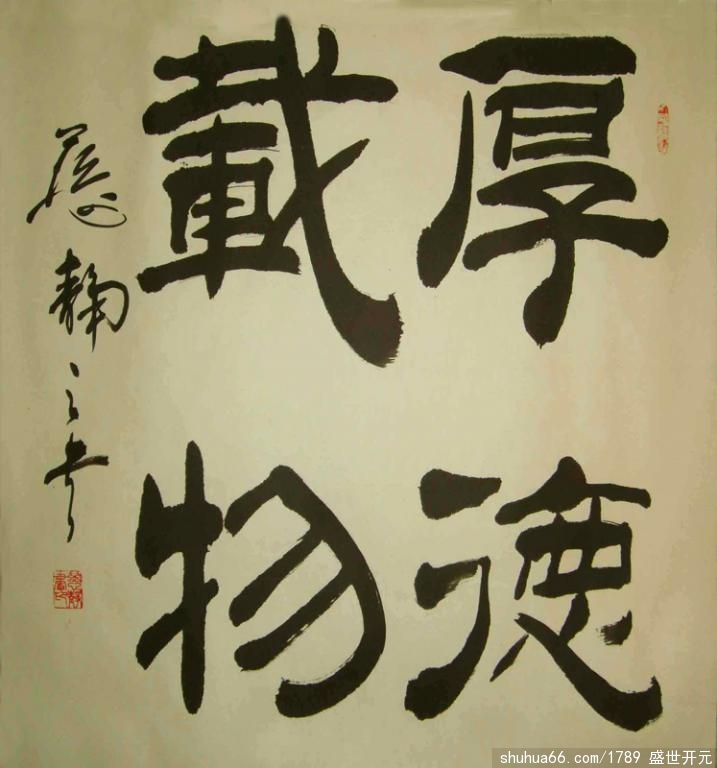 厚德
載物
靜之書
shuhua66.com/1789 盛世开元